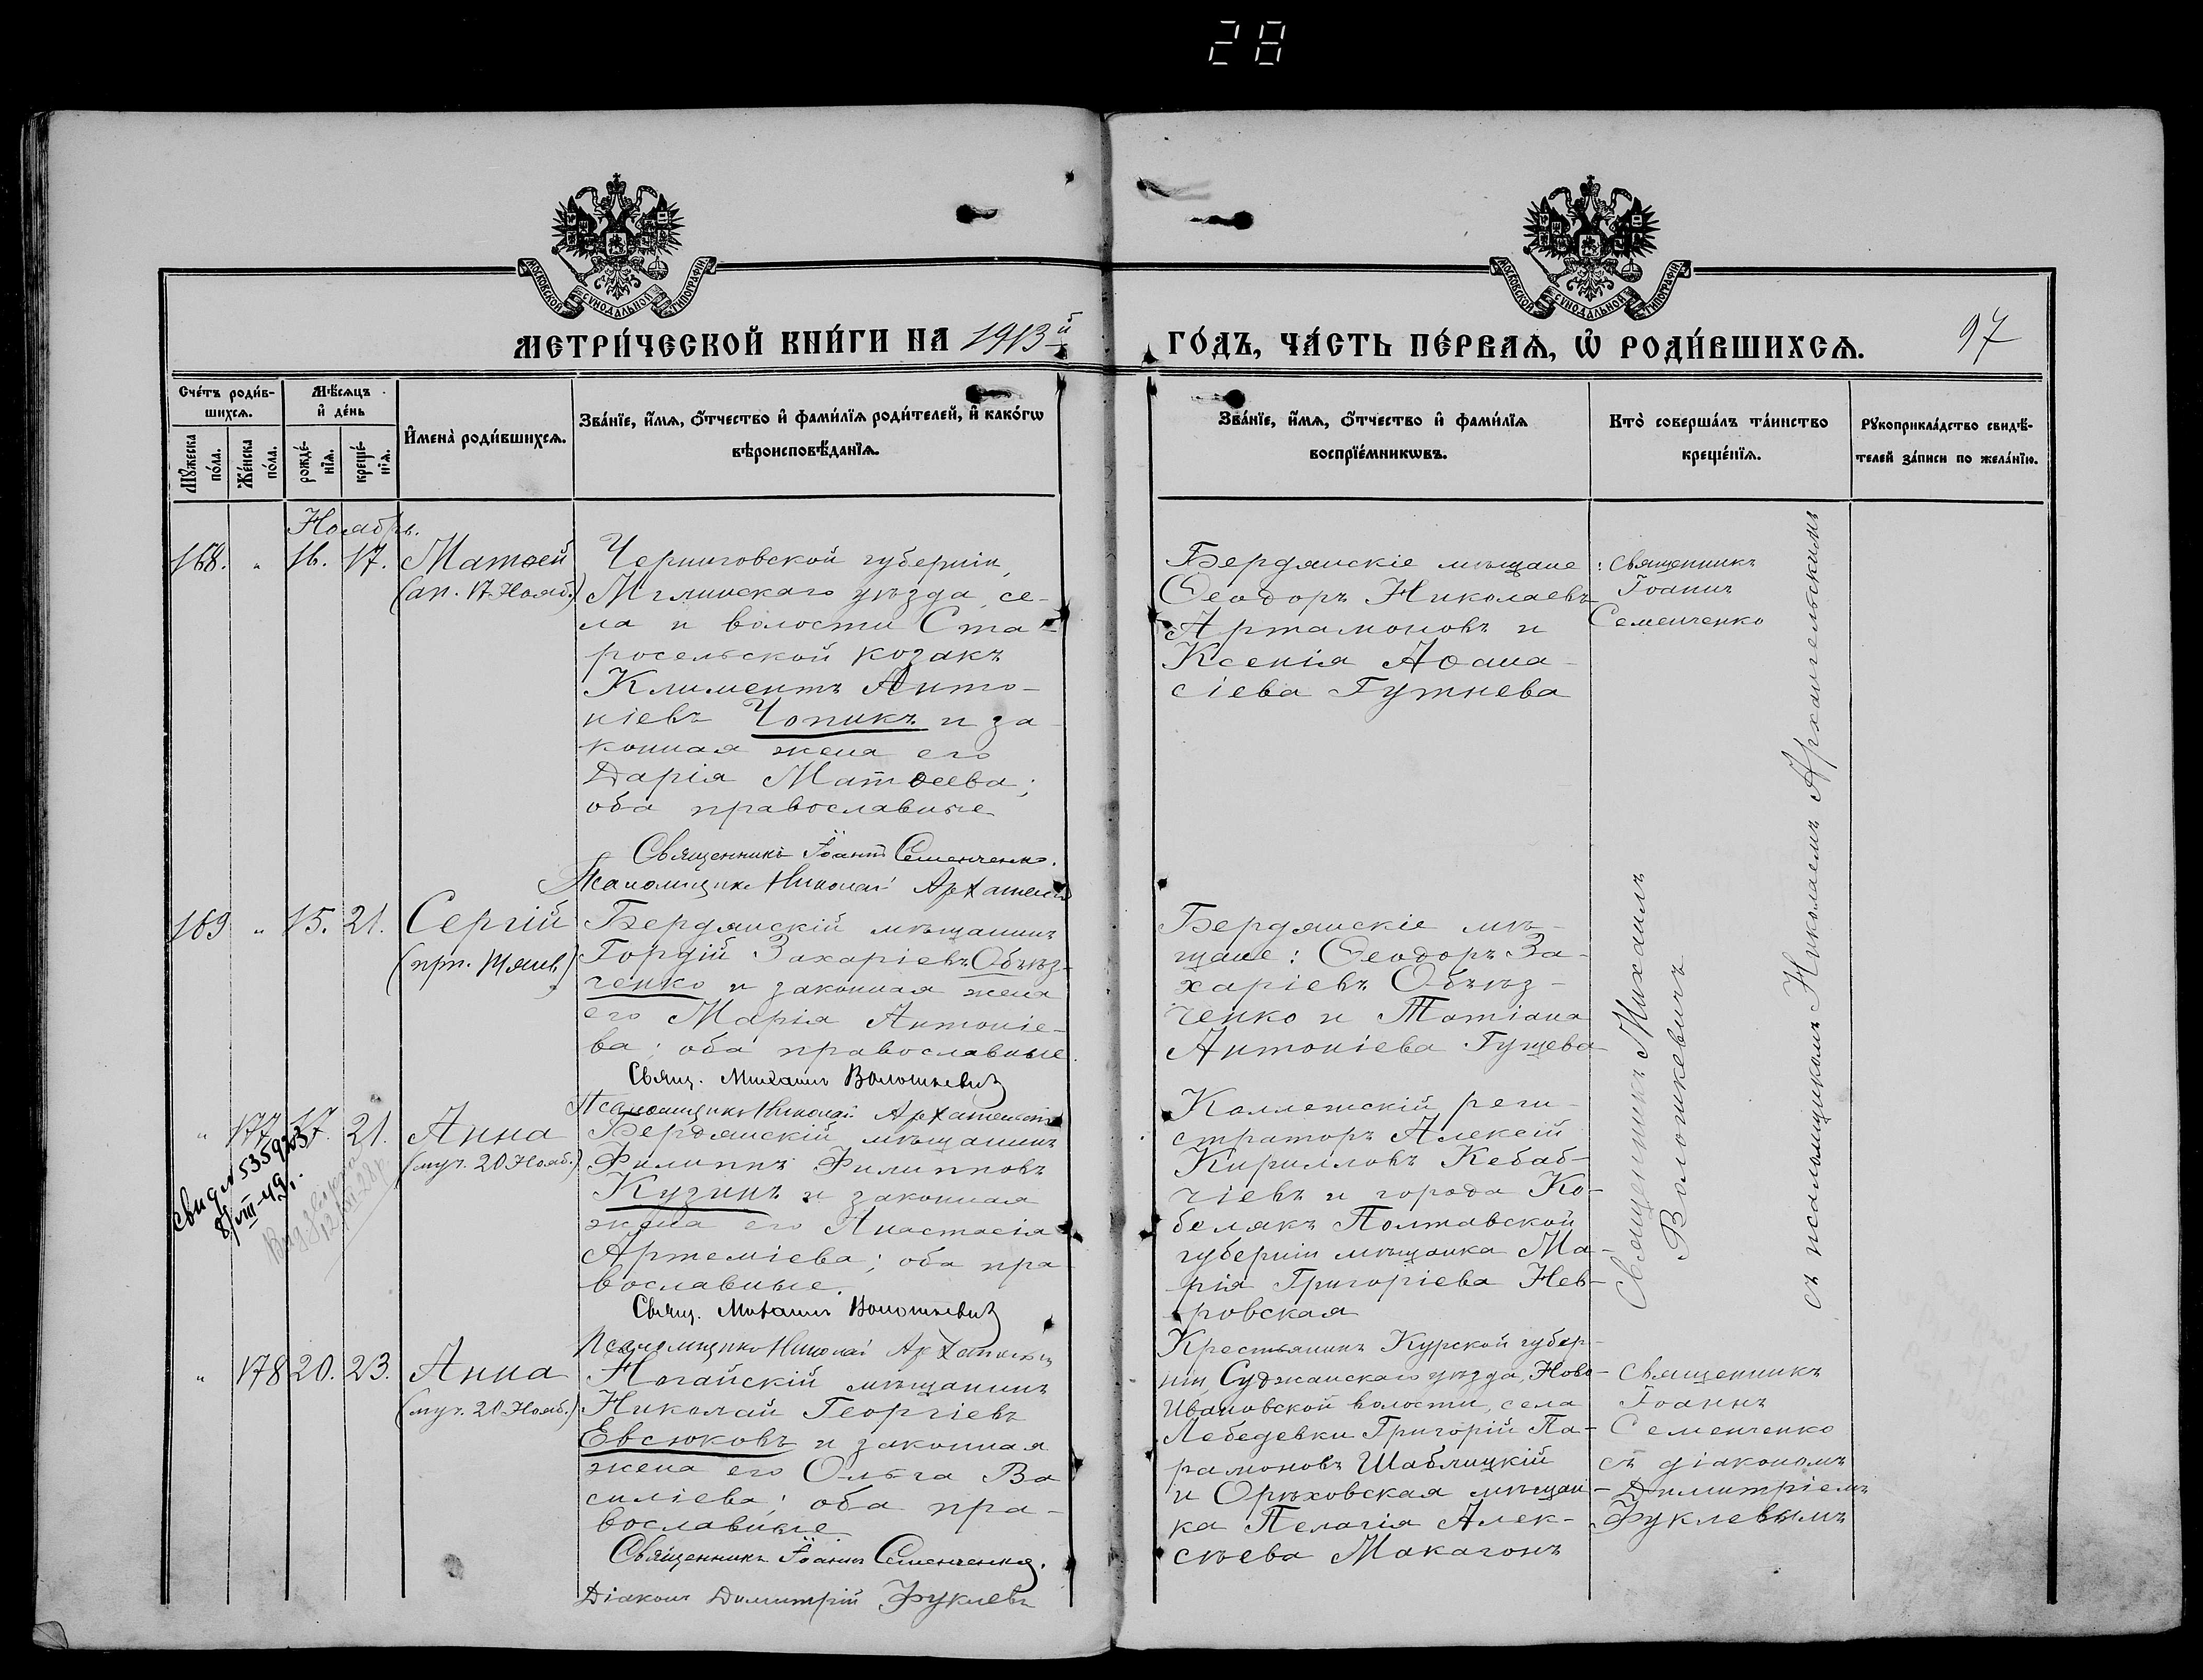 28
МОСКОВСКОЙ СѴНОДАЛЬНОЙ ТИПОГРАФІИ
МОСКОВСКОЙ СѴНОДАЛЬНОЙ ТИПОГРАФІИ
МЕТРИ́ЧЕСКОЙ КНИ́ГИ НА 1913й
ГО́ДЪ, ЧА́СТЬ ПЕ́РВАѦ, Ѽ РОДИ́ВШИХСѦ.
97
Сче́тъ роди́в-
шихсѧ.
Мѣ́сѧцъ
и҆ де́нь
И҆мена̀ роди́вшихсѧ.
Зва́нїе, и҆́мѧ, ѻ҆́тчество и҆ фами́лїѧ роди́телей, и҆ како́гѡ
вѣроисповѣ́данїѧ.
Мꙋ́жеска
по́ла.
Же́нска
по́ла.
рожде́-
нїѧ.
креще́-
нїѧ.
Зва́нїе, и҆́мѧ, ѻ҆́тчество и҆ фами́лїѧ
воспрїе́мникѡвъ.
Кто̀ соверша́лъ та́инство
креще́нїѧ.
Рꙋкоприкла́дство свидѣ́-
телей за́писи по жела́нїю.
Ноябрь.
168. „ 16. 17. Матѳей
(ап. 17 Нояб.)
Черниговской губерніи,
Мглинскаго уѣзда, се-
ла и волости Ста-
росельской козакъ
Климентъ Анто-
ніевъ Чопикъ и за
конная жена его
Дарія Матѳеева;
оба православные
Священникъ Іоаннъ Семенченко.
Псаломщикъ Николай Архангельскій
Бердянскіе мѣщане:
Ѳеодоръ Николаевъ
Артамоновъ и
Ксенія Аѳана-
сіева Гутнева
Священникъ
Іоаннъ
Семенченко
169 „ 15. 21. Сергій
Бердянскій мѣщанинъ
Гордій Захаріевъ Объѣз-
ченко и законная жена
его Марія Антоніе-
ва; оба православные.
Свящ. Михаилъ Волошкевичъ
Псаломщикъ Николай Архангельскій
Бердянскіе мѣ-
щане: Ѳеодоръ За-
харіевъ Объѣз-
ченко и Татіана
Антоніева Гущева
Священникъ Михаилъ
Волошкевичъ
съ псаломщикомъ Николаемъ Архангельскимъ
„ 177 17. 21. Анна
(муч. 20 Нояб.)
Свид № 5359203
8/VIII-49г.
Бердянскій мѣщанинъ
Филиппъ Филипповъ
Кузинъ и законная
жена его Анастасія
Артеміева; оба пра
вославные.
Свящ. Михаилъ Волошкевичъ
Псаломщикъ Николай Архангельскій
Коллежскій реги-
страторъ Алексій
Кирилловъ Кебаб-
чіевъ и города Ко-
белякъ Полтавской
губерніи мѣщанка Ма-
рія Григоріева Нев-
ровская
„ 178 20. 23. Анна
(муч. 20 Нояб.)
Ногайскій мѣщанинъ
Николай Георгіевъ
Евсюковъ и законная
жена его Ольга Ва
силіева; оба пра-
вославные
Священникъ Іоаннъ Семенченко.
Діаконъ Димитрій Фуклевъ
Крестьянинъ Курской губер-
ніи, Суджанскаго уѣзда, Ново-
Ивановской волости, села
Лебедевки Григорій Па-
рамоновъ Шаблицкій
и Орѣховская мѣщан-
ка Пелагія Алек-
сѣева Макагонъ
Священникъ
Іоаннъ
Семенченко
съ діакономъ
Димитріемъ
Фуклевымъ